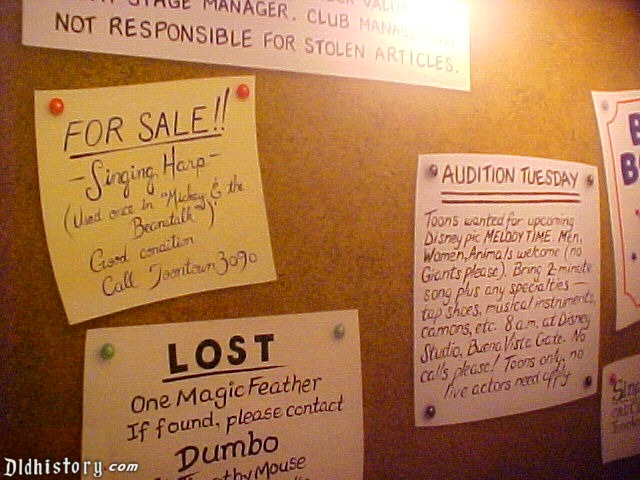 STAGE MANAGER. CLUB
NOT RESPONSIBLE FOR STOLEN ARTICLES.
FOR SALE!!
- Singing Harp -
(Used once in "Mickey & the
Beanstalk")
Good condition
Call Toontown 3090
LOST
One Magic Feather
If found, please contact
Dumbo
Mouse
AUDITION TUESDAY
Toons wanted for upcoming
Disney pic MELODY TIME. Men,
Women, Animals welcome (no
Giants please). Bring 2-minute
song plus any specialties —
tap shoes, musical instruments,
canons, etc. 8 a.m. at Disney
Studio, Buena Vista Gate. No
calls please! Toons only, no
live actors need apply.
B
Bo
Dldhistory.com